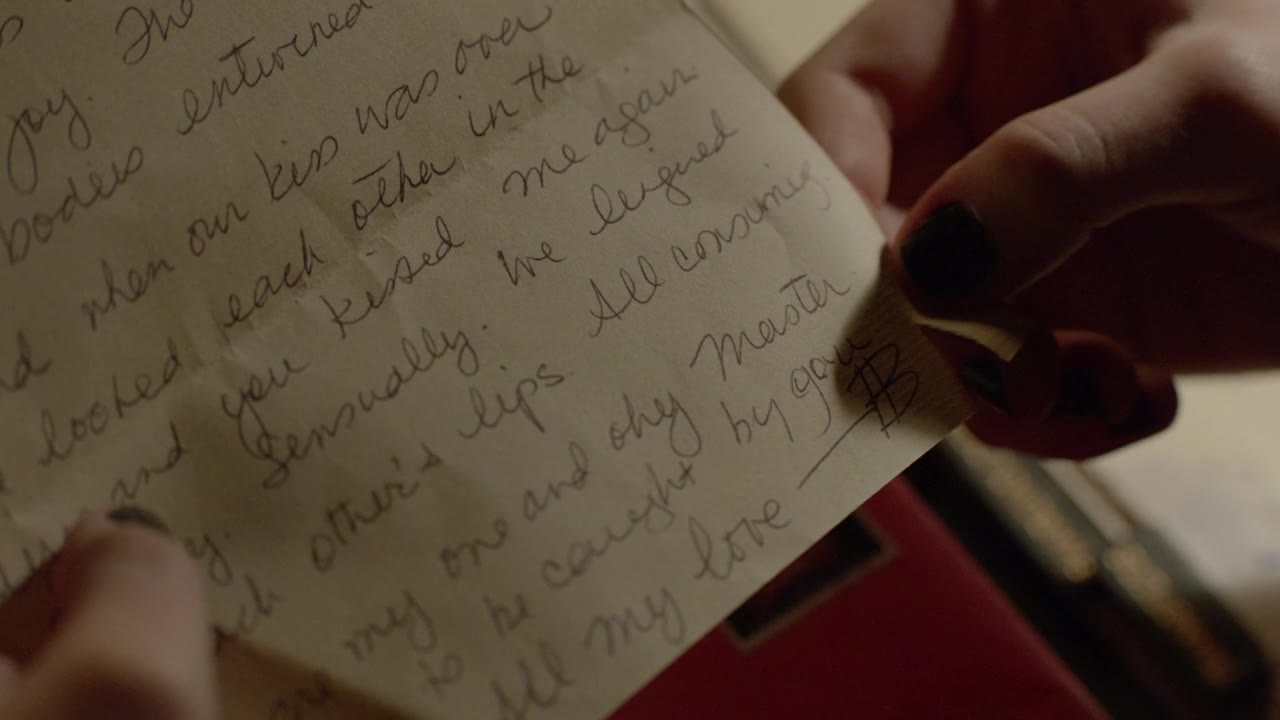 joy. The
bodies entwined
when our kiss was over
looked each other in the
and you kissed me again.
sensually. We leigned
other's lips. All consuming
my one and only Master
to be caught by your
All my love — B